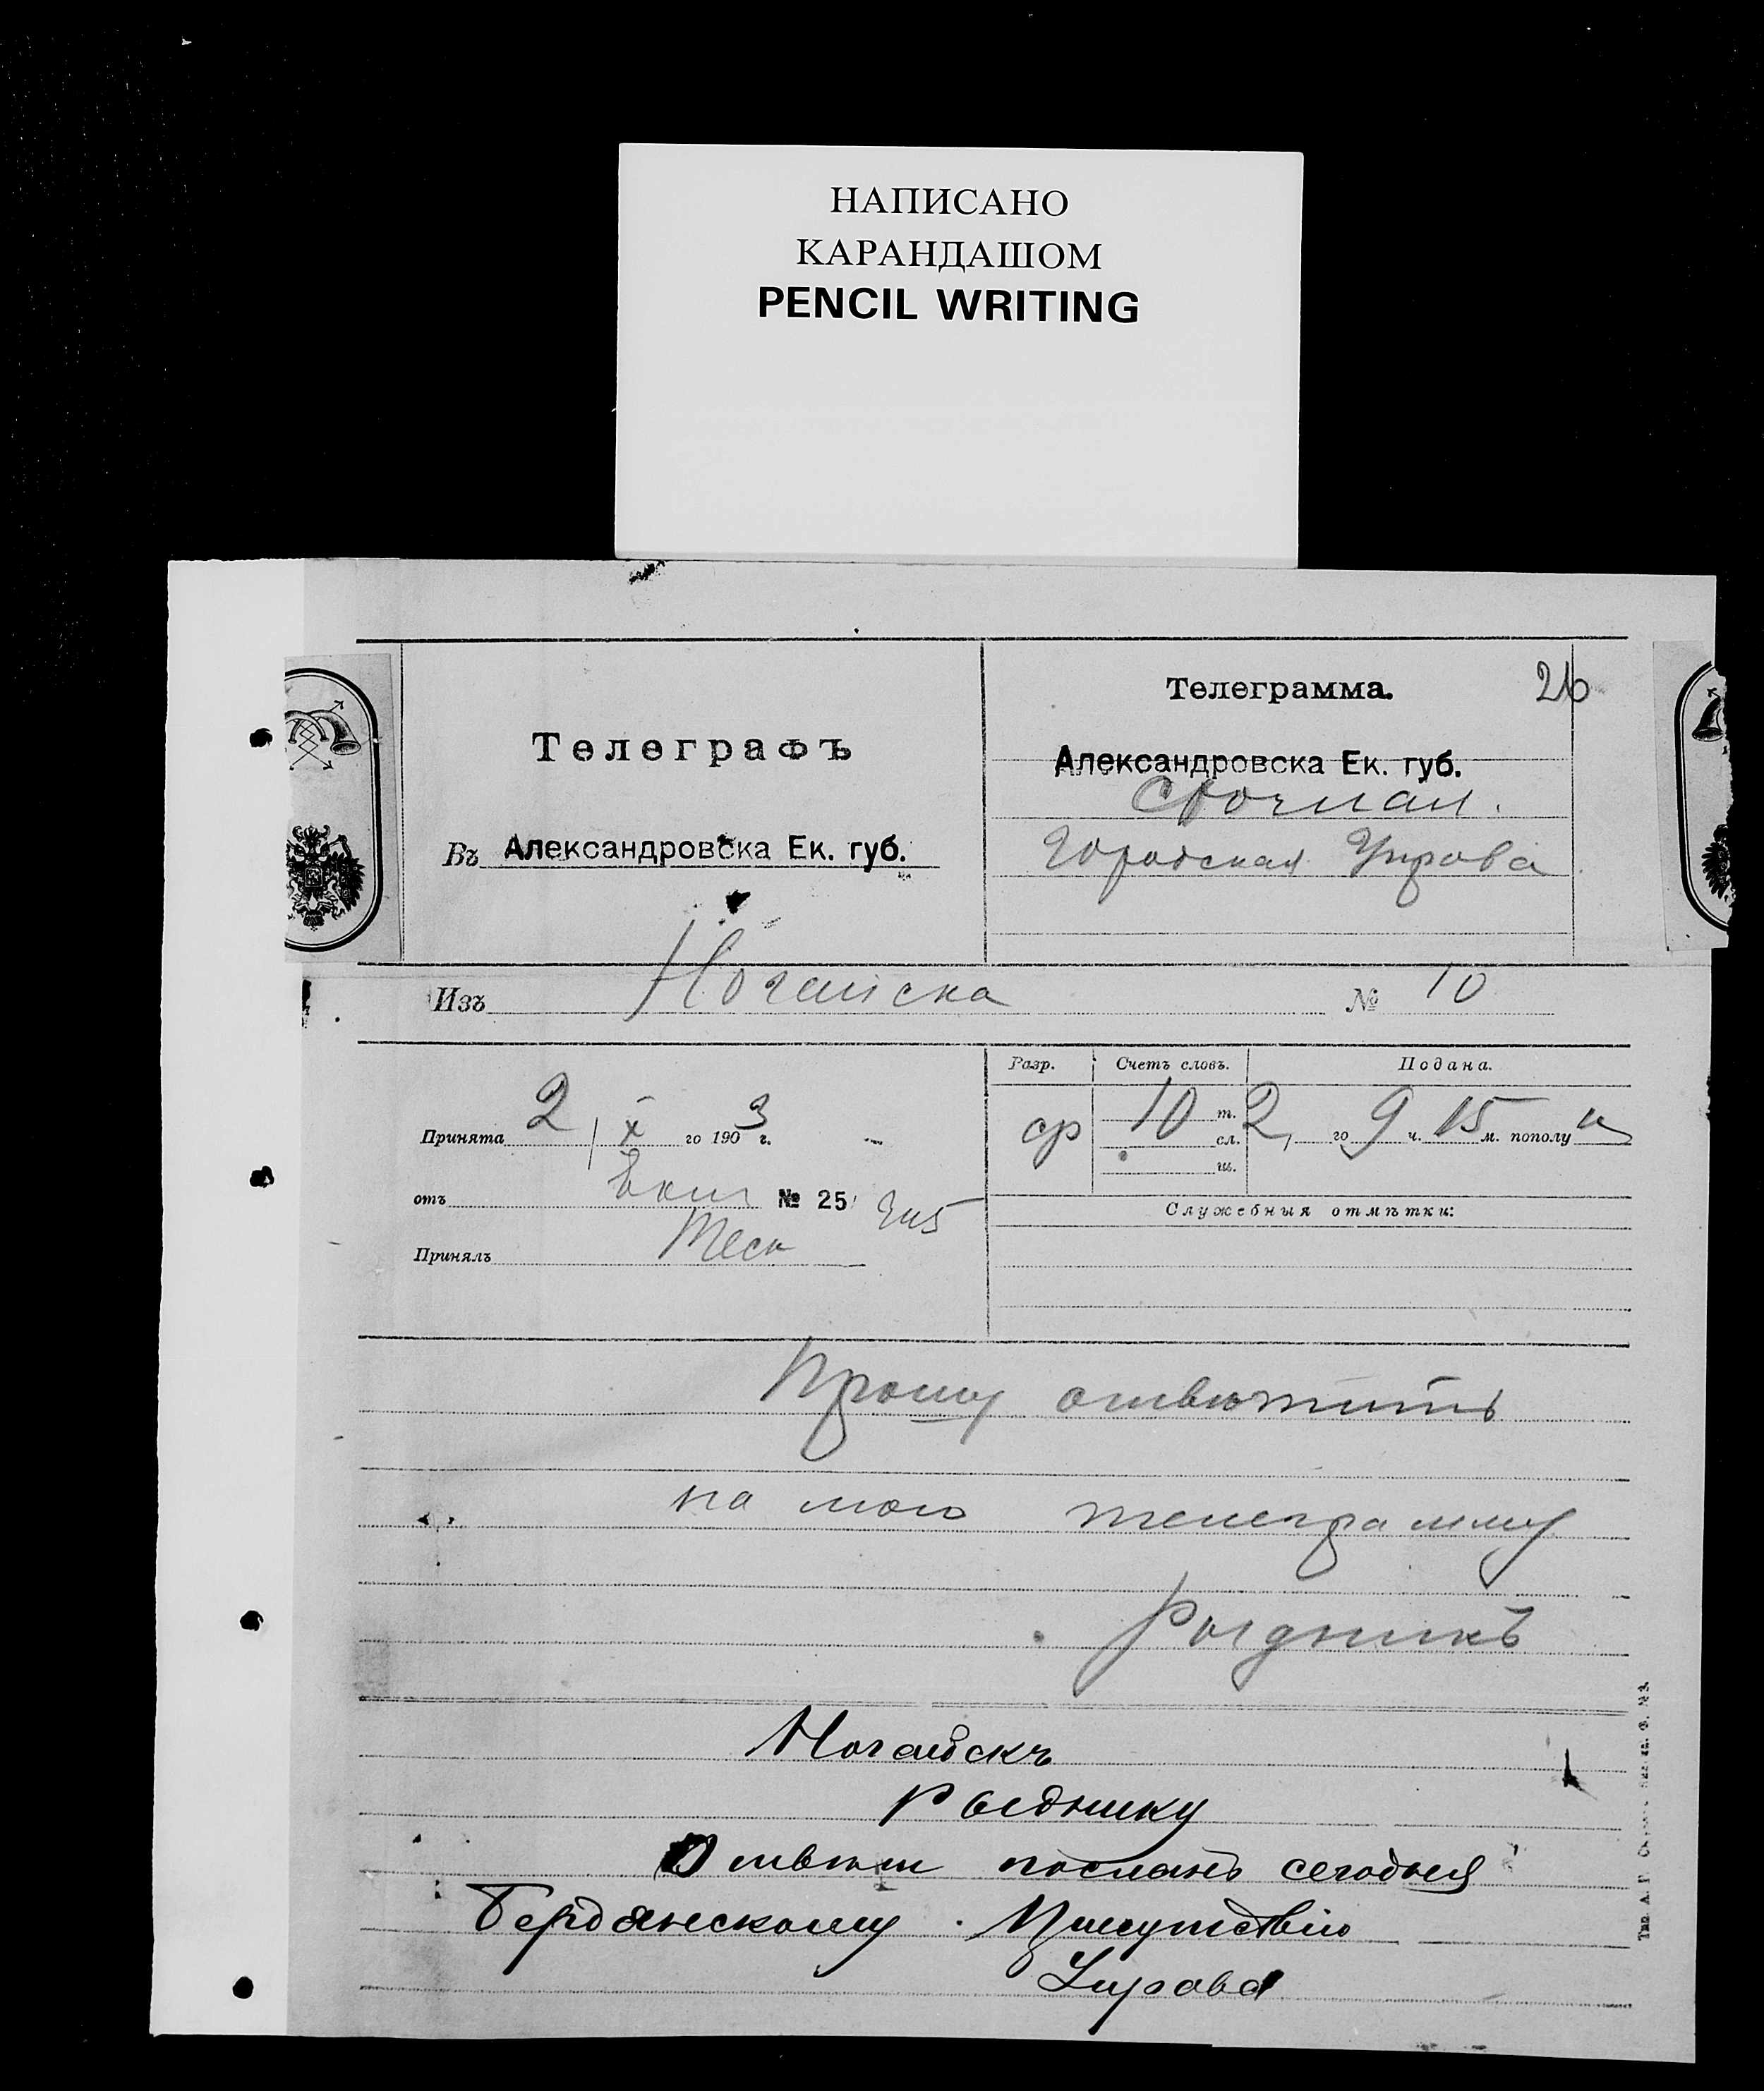 НАПИСАНО
КАРАНДАШОМ
PENCIL WRITING
Телеграфъ
Въ Александровска Ек. губ.
Телеграмма. 26
Александровска Ек. губ.
Срочная.
Городская Управа
Изъ Ногайска № 10
Принята 2/X го 1903 г.
отъ № 25
Принялъ
Разр. Счетъ словъ. Подана.
ср 10 т. 2 го 9 ч. 15 м. пополу н
сл.
ш.
Служебныя отмѣтки:
Прошу отвѣтить
на мою телеграмму
Рыдникъ
Ногайскъ
Рыднику
Отвѣтъ посланъ сегодня
Бердянскому Присутствію
Управа